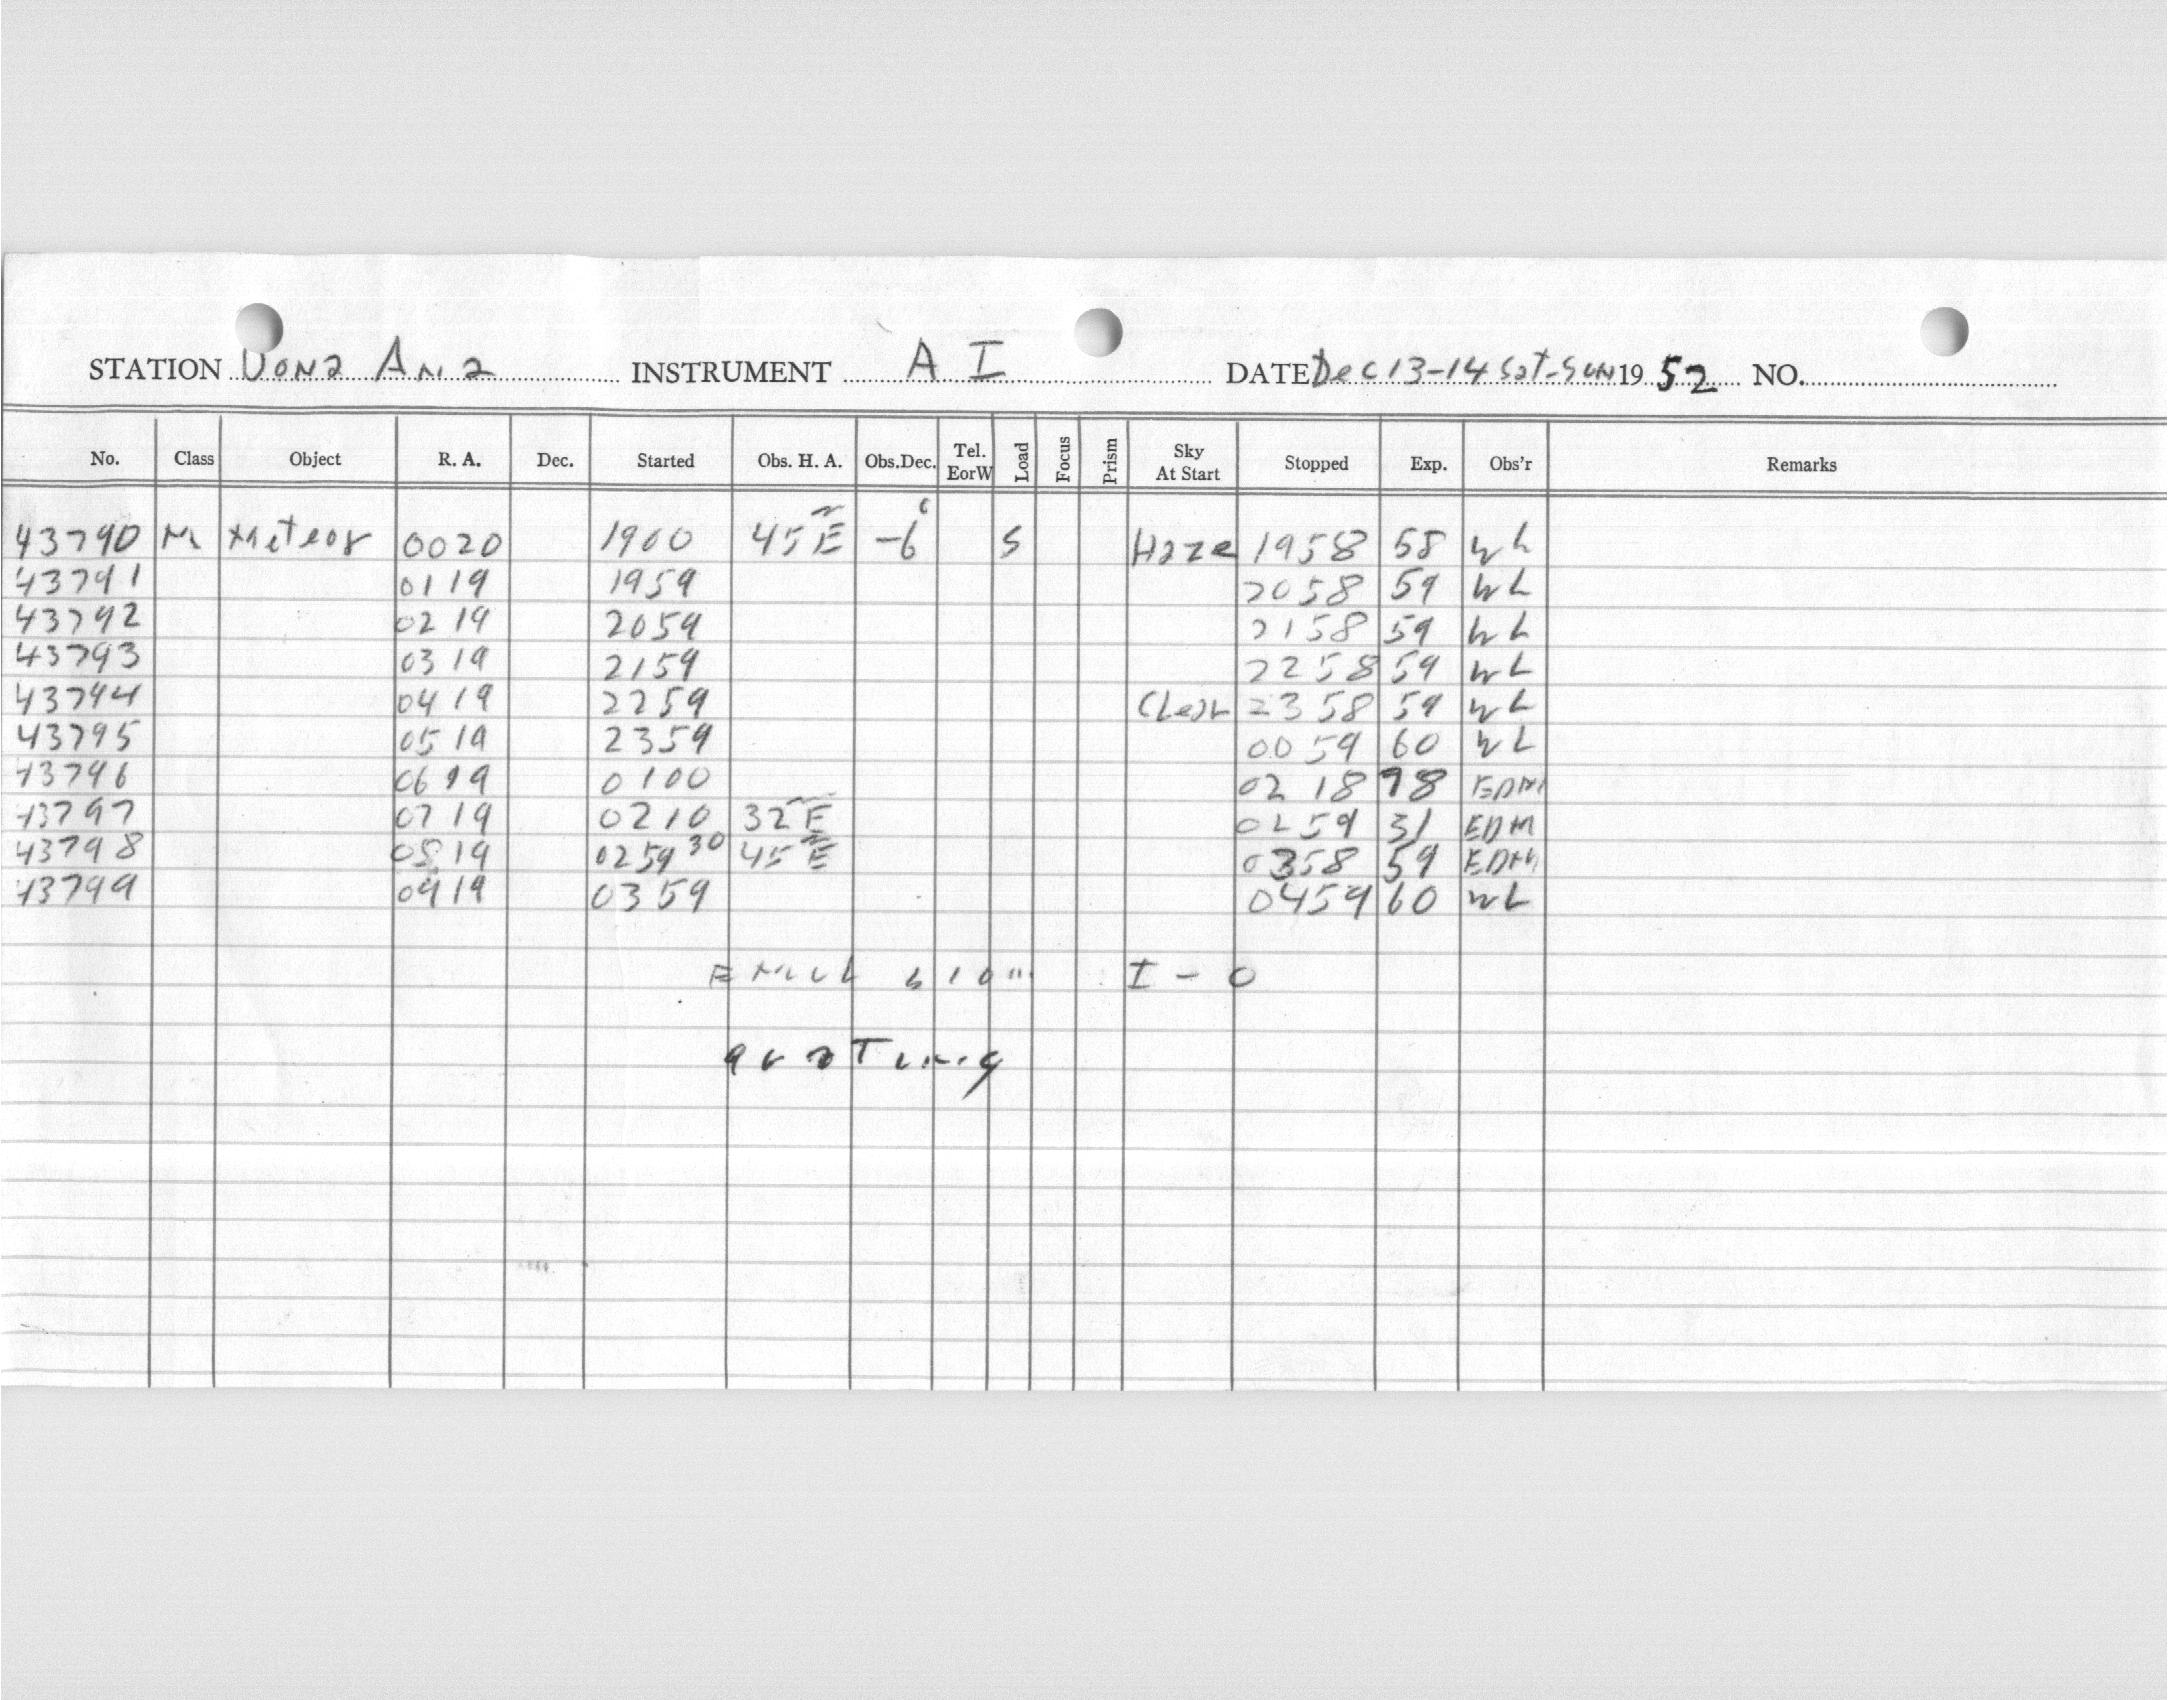 STATION Dona Ana INSTRUMENT A I DATE Dec 13-14 Sat-Sun 19 52 NO.
No. Class Object R. A. Dec. Started Obs. H. A. Obs.Dec. Tel. EorW Load Focus Prism Sky At Start Stopped Exp. Obs'r Remarks
43790 M Meteor 0020 1900 45 E -6° S Haze 1958 58 WL
43791 0119 1959 2058 59 WL
43792 0219 2059 2158 59 WL
43793 0319 2159 2258 59 WL
43794 0419 2259 Clear 2358 59 WL
43795 0519 2359 0059 60 WL
43796 0619 0100 0218 78 EDM
43797 0719 0210 32 E 0259 31 EDM
43798 0819 0259 30 45 E 0358 59 EDM
43799 0919 0359 0459 60 WL
I - 0